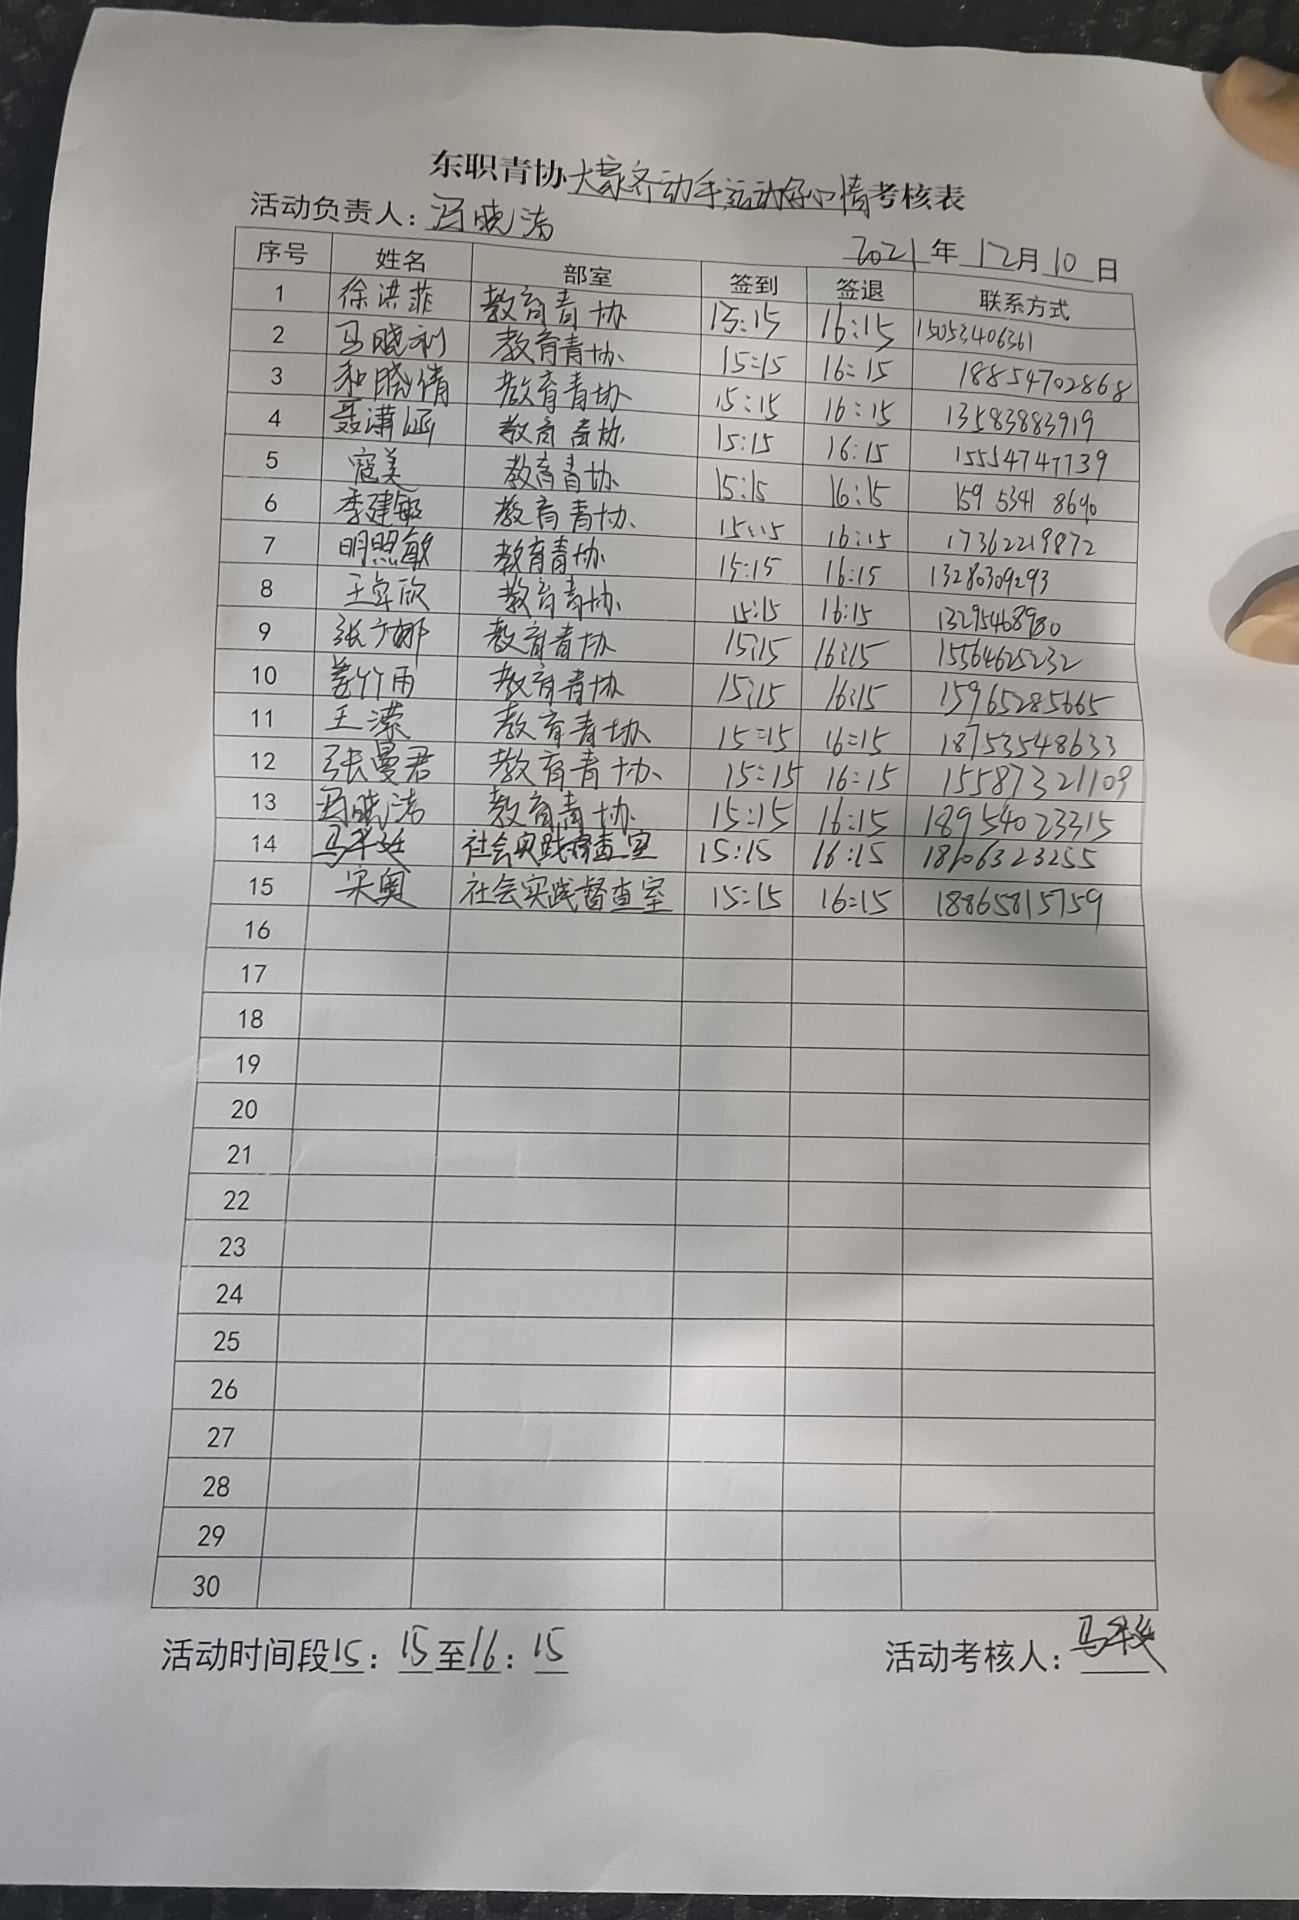 东职青协大家齐动手运动好心情考核表
活动负责人：冯晓洁
2021年12月10日
序号 姓名 部室 签到 签退 联系方式
1 徐洪菲 教育青协 15:15 16:15 15053406361
2 马晓利 教育青协 15:15 16:15 18854702868
3 和晓倩 教育青协 15:15 16:15 13583883919
4 聂潇涵 教育青协 15:15 16:15 15554747739
5 寇美 教育青协 15:15 16:15 159 5341 8690
6 李建敏 教育青协 15:15 16:15 17362219872
7 明照敏 教育青协 15:15 16:15 13280309293
8 王卓欣 教育青协 15:15 16:15 13295468980
9 张娜 教育青协 15:15 16:15 15564625232
10 姜竹雨 教育青协 15:15 16:15 15965285665
11 王潆 教育青协 15:15 16:15 18753548633
12 张曼君 教育青协 15:15 16:15 15587321109
13 冯晓洁 教育青协 15:15 16:15 18954023315
14 社会实践督查室 15:15 16:15 18606323255
15 宋奥 社会实践督查室 15:15 16:15 18865815759
16
17
18
19
20
21
22
23
24
25
26
27
28
29
30
活动时间段15：15至16：15
活动考核人：